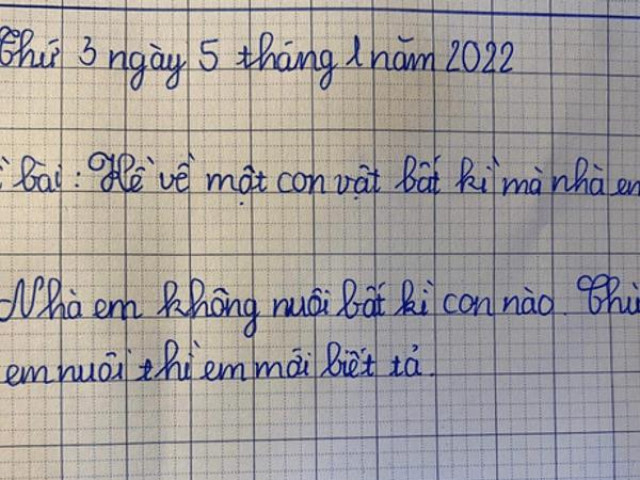 Thứ 3 ngày 5 tháng 1 năm 2022
bài: Kể về một con vật bất kì mà nhà em
Nhà em không nuôi bất kì con nào. Thi
em nuôi thì em mới biết tả.